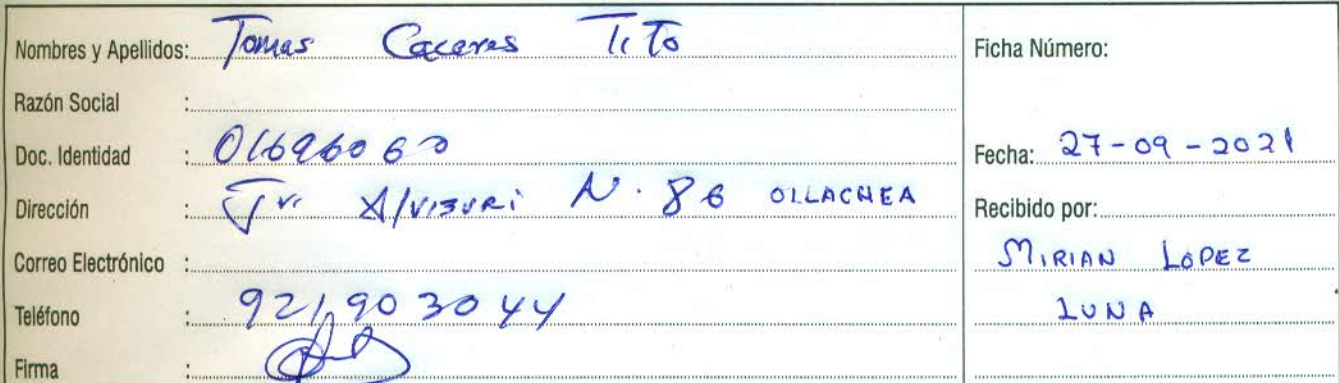 Nombres y Apellidos: Tomas Caceres Tito
Razón Social :
Doc. Identidad : 01696060
Dirección : Jr. Alvizuri N. 86 OLLACHEA
Correo Electrónico :
Teléfono : 921903044
Firma :
Ficha Número:
Fecha: 27-09-2021
Recibido por:
MIRIAN LÓPEZ
LUNA